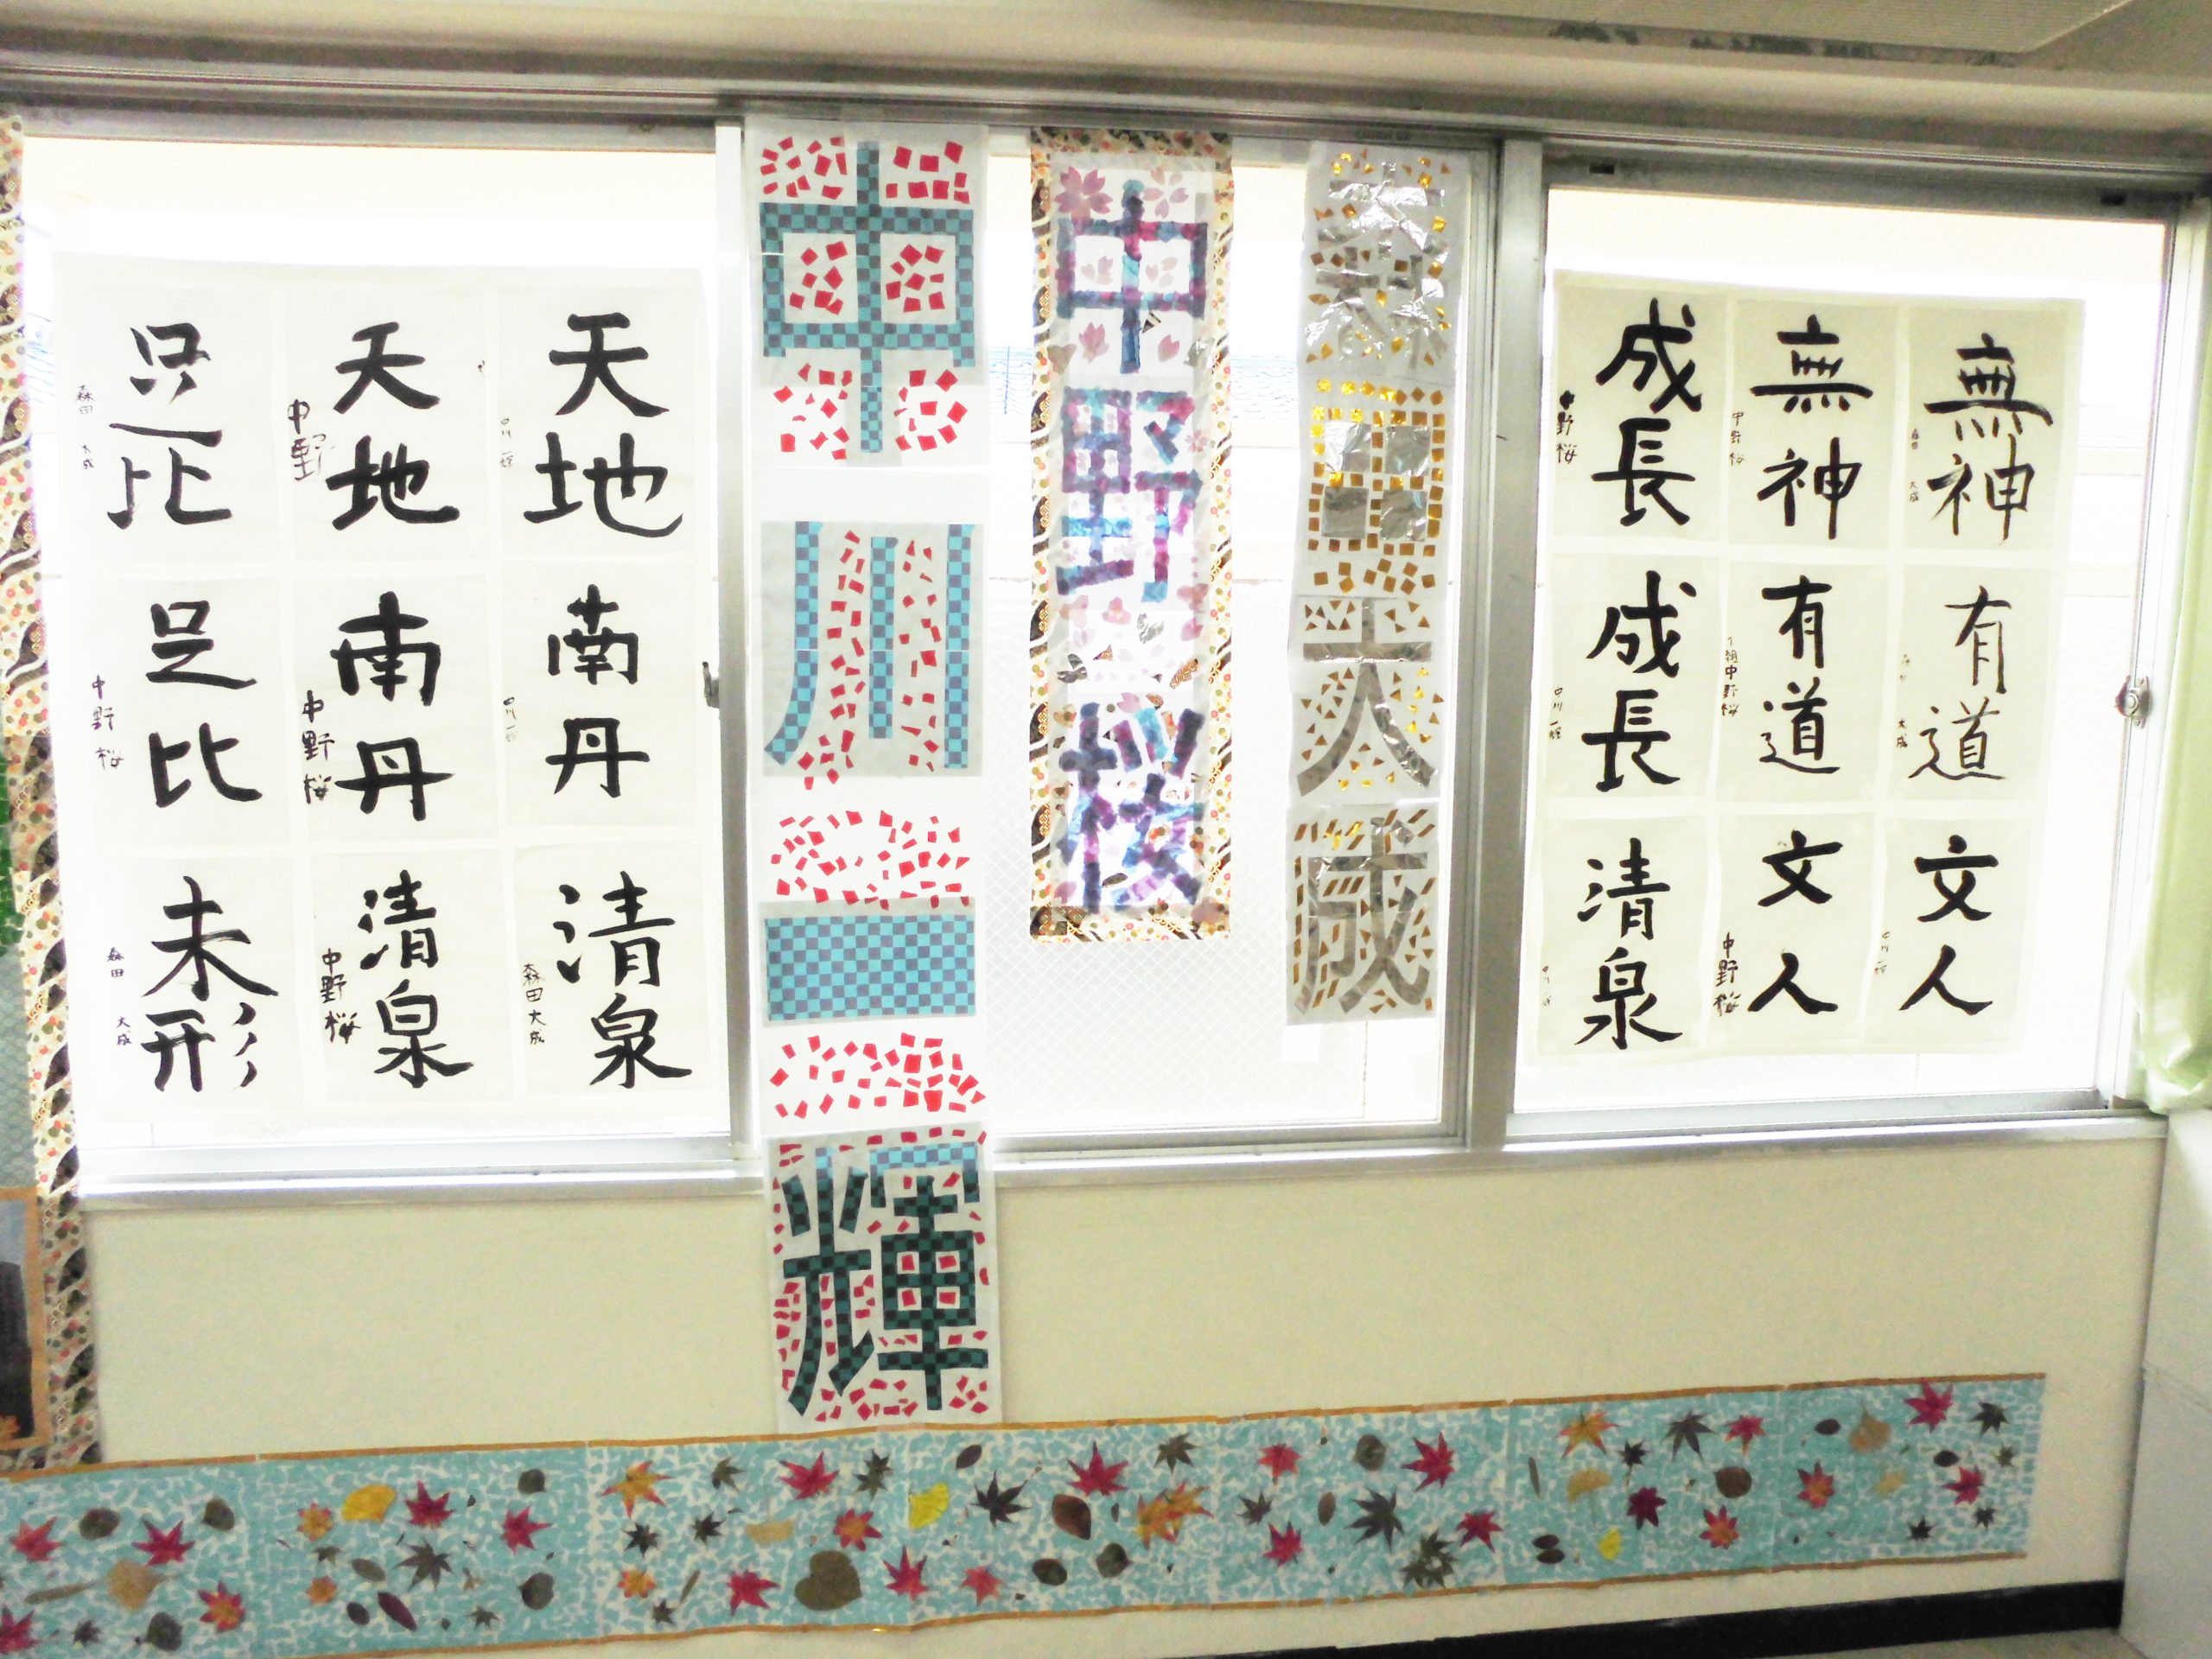 無神
森田 大成
有道
大成
文人
無神
中野桜
有道
中野桜
文人
中野桜
成長
中野桜
成長
中川一輝
清泉
森田大成
中野桜
中川一輝
天地
中川一輝
南丹
中川一輝
清泉
森田大成
天地
中野
南丹
中野桜
清泉
中野桜
足比
森田 大成
足比
中野桜
未形
森田 大成